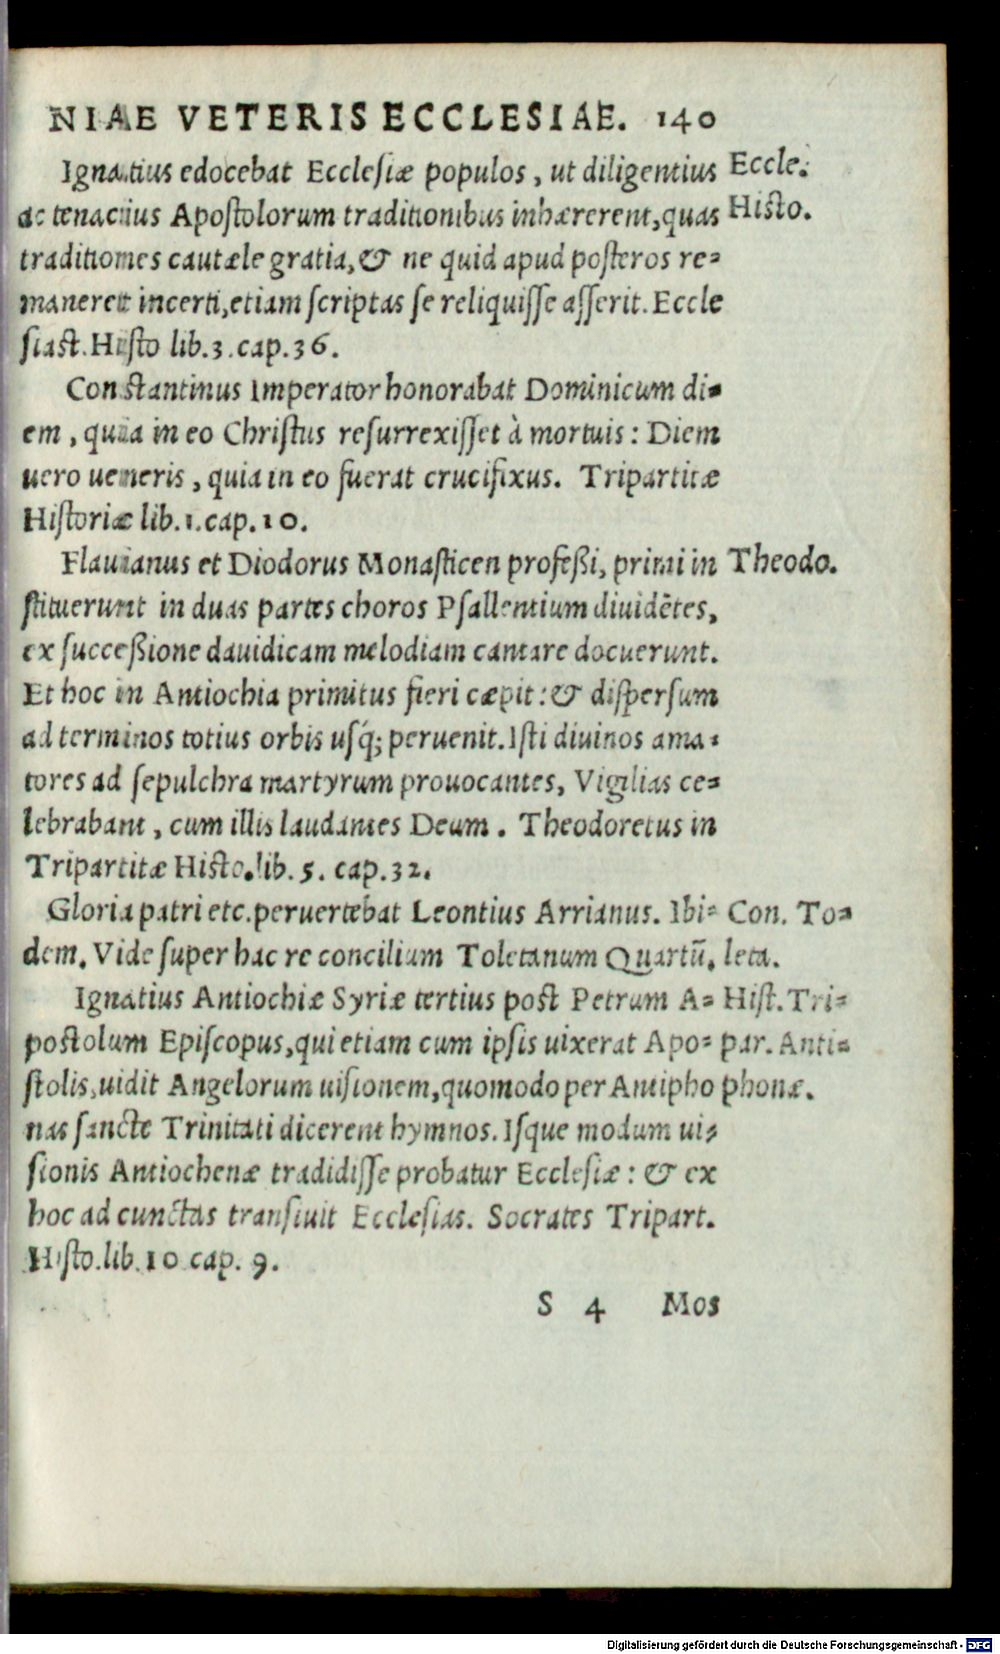 NIAE VETERIS ECCLESIAE. 140
Ignatius edocebat Ecclesiæ populos, ut diligentius
ac tenacius Apostolorum traditionibus inhærerent, quas
traditiones cautæle gratia, & ne quid apud posteros re-
maneret incerti, etiam scriptas se reliquisse asserit. Eccle
siast. Histo lib. 3. cap. 36.
Eccle.
Histo.
Constantinus Imperator honorabat Dominicum di-
em, quia in eo Christus resurrexisset à mortuis: Diem
uero ueneris, quia in eo fuerat crucifixus. Tripartitæ
Historiæ lib. 1. cap. 10.
Flauianus et Diodorus Monasticen profeßi, primi in
stituerunt in duas partes choros Psallentium diuidētes,
ex succeßione dauidicam melodiam cantare docuerunt.
Et hoc in Antiochia primitus fieri cæpit: & dispersum
ad terminos totius orbis usq́; peruenit. Isti diuinos ama-
tores ad sepulchra martyrum prouocantes, Vigilias ce-
lebrabant, cum illis laudantes Deum. Theodoretus in
Tripartitæ Histo. lib. 5. cap. 32.
Theodo.
Gloria patri etc. peruertebat Leontius Arrianus. Ibi-
dem. Vide super hac re concilium Toletanum Quartū.
Con. To-
leta.
Ignatius Antiochiæ Syriæ tertius post Petrum A-
postolum Episcopus, qui etiam cum ipsis uixerat Apo-
stolis, uidit Angelorum uisionem, quomodo per Antipho
nas sanctæ Trinitati dicerent hymnos. Isque modum ui-
sionis Antiochenæ tradidisse probatur Ecclesiæ: & ex
hoc ad cunctas transiuit Ecclesias. Socrates Tripart.
Histo. lib. 10 cap. 9.
Hist. Tri-
par. Anti-
phonæ.
S 4 Mos
Digitalisierung gefördert durch die Deutsche Forschungsgemeinschaft - DFG